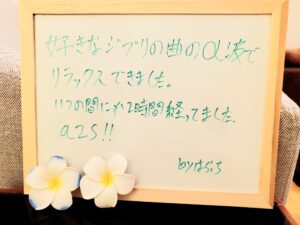 好きなジブリの曲のα波で
リラックスできました。
いつの間にか2時間経ってました
a2s!!
by はらち